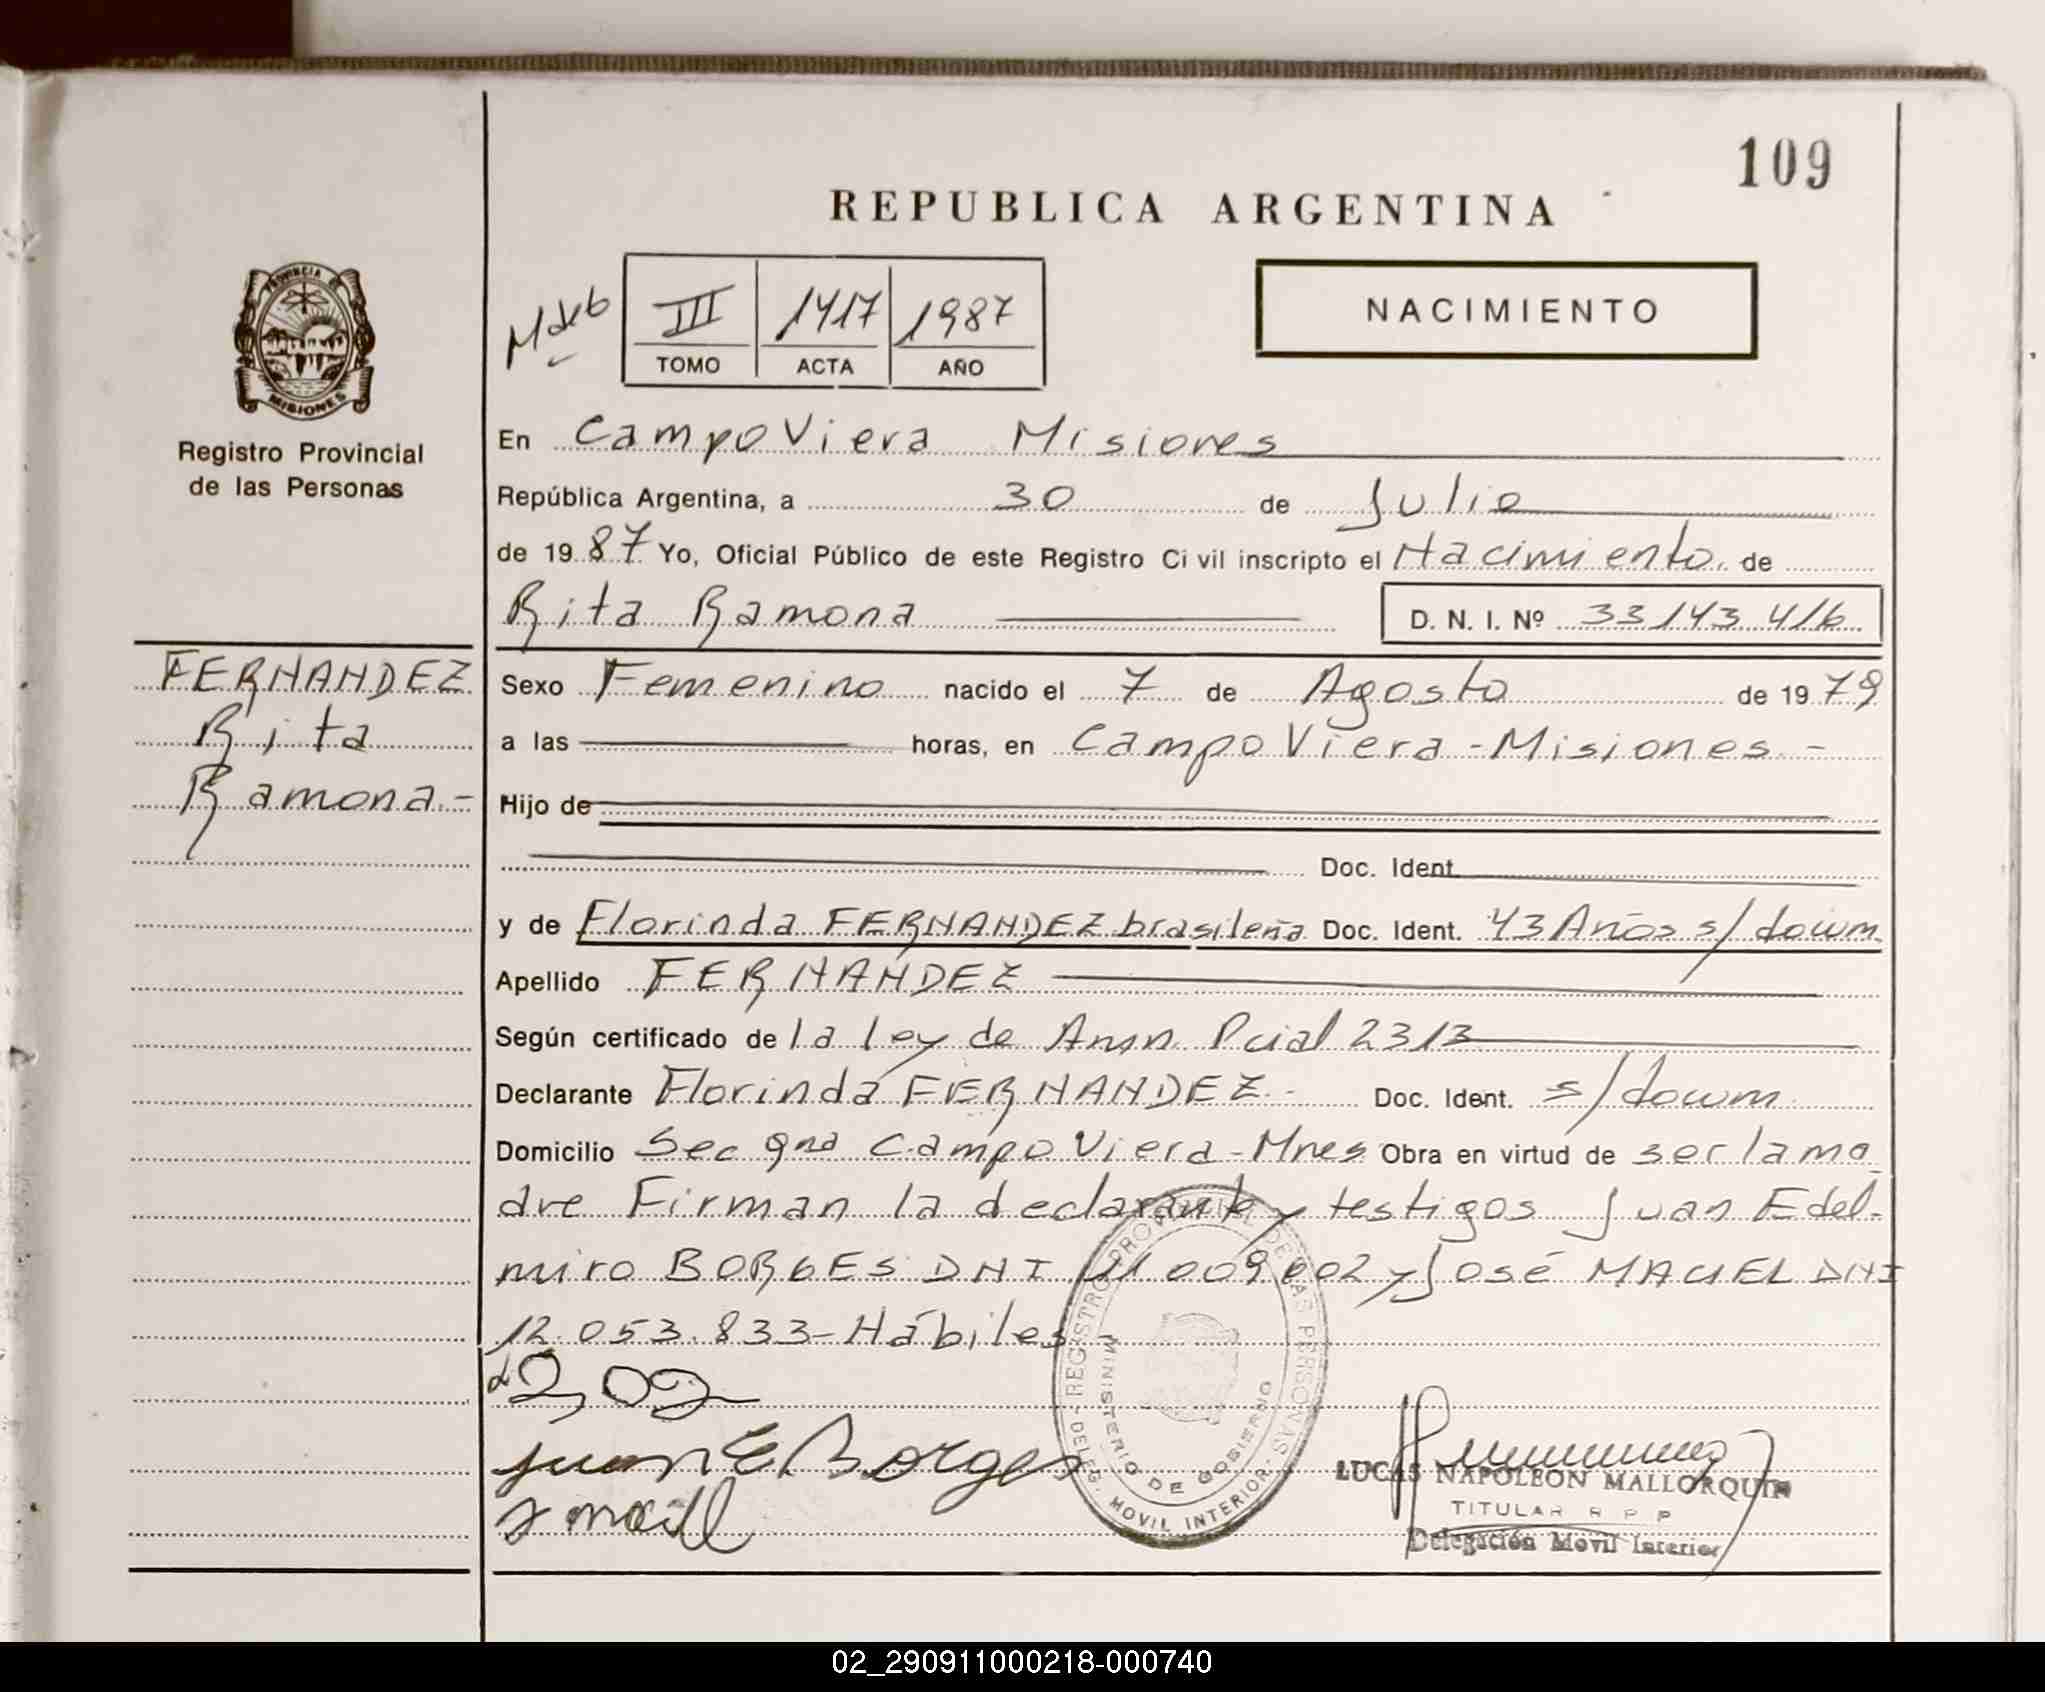 109
REPUBLICA ARGENTINA
III 1417 1987
TOMO ACTA AÑO
NACIMIENTO
PROVINCIA DE
MISIONES
Registro Provincial
de las Personas
En Campo Viera Misiones
República Argentina, a 30 de Julio
de 1987 Yo, Oficial Público de este Registro Civil inscripto el Nacimiento de
Rita Ramona D. N. I. Nº 33143416
FERNANDEZ
Rita
Ramona.-
Sexo Femenino nacido el 7 de Agosto de 1979
a las horas, en Campo Viera - Misiones -
Hijo de
Doc. Ident.
y de Florinda FERNANDEZ brasileña Doc. Ident. 43 Años s/docum
Apellido FERNANDEZ
Según certificado de la ley de Amn. Pcial 2313
Declarante Florinda FERNANDEZ.- Doc. Ident. s/docum
Domicilio Sec 9na Campo Viera - Mnes Obra en virtud de ser la ma
dre Firman la declarante y testigos Juan Edel-
miro BORGES DNI 11 009 002 y José MACIEL DNI
12.053.833-Hábiles
Juan E Borges
DELEG. MOVIL INTERIOR - REGISTRO PROVINCIAL DE LAS PERSONAS -
MINISTERIO DE GOBIERNO
LUCAS NAPOLEON MALLORQUIN
TITULAR R P P
Delegación Movil Interior
02_290911000218-000740